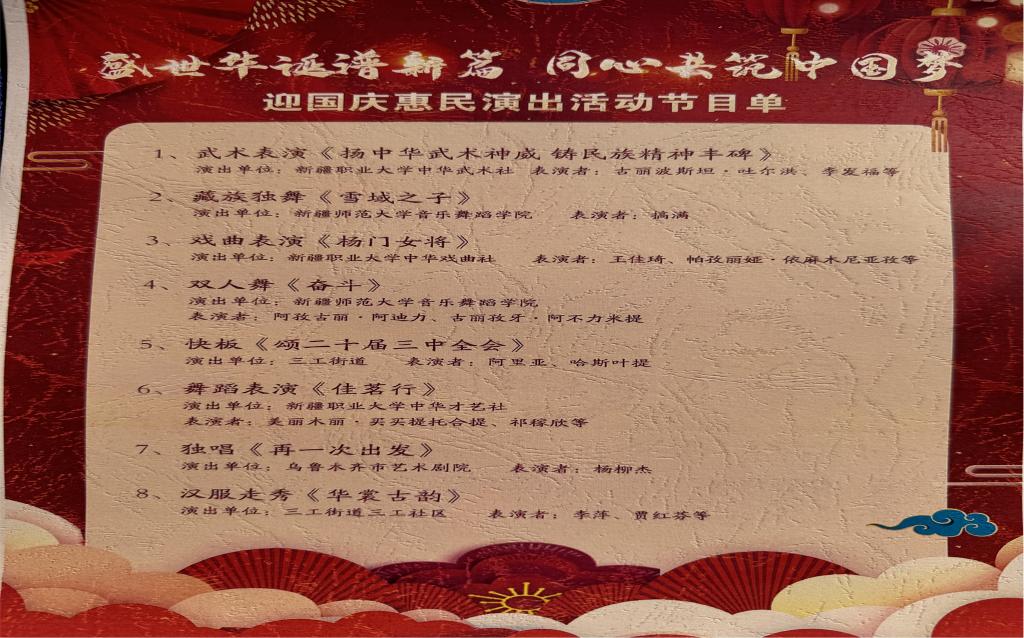 盛世华诞谱新篇 同心共筑中国梦
迎国庆惠民演出活动节目单
1、武术表演《扬中华武术神威 铸民族精神丰碑》
演出单位：新疆职业大学中华武术社 表演者：古丽波斯坦·吐尔洪、李发福等
2、藏族独舞《雪域之子》
演出单位：新疆师范大学音乐舞蹈学院 表演者：搞满
3、戏曲表演《杨门女将》
演出单位：新疆职业大学中华戏曲社 表演者：王佳琦、帕孜丽娅·依麻木尼亚孜等
4、双人舞《奋斗》
演出单位：新疆师范大学音乐舞蹈学院
表演者：阿孜古丽·阿迪力、古丽孜牙·阿不力米提
5、快板《颂二十届三中全会》
演出单位：三工街道 表演者：阿里亚、哈斯叶提
6、舞蹈表演《佳茗行》
演出单位：新疆职业大学中华才艺社
表演者：美丽木丽·买买提托合提、祁稼欣等
7、独唱《再一次出发》
演出单位：乌鲁木齐市艺术剧院 表演者：杨柳杰
8、汉服走秀《华裳古韵》
演出单位：三工街道三工社区 表演者：李萍、贾红芬等